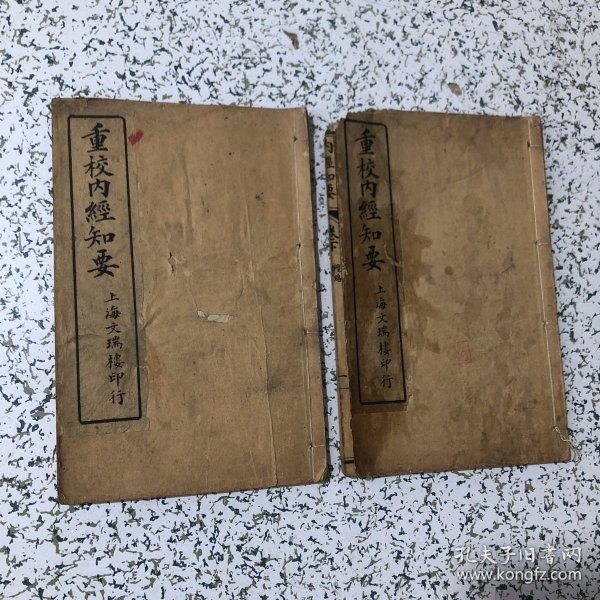 重校內經知要
上海文瑞樓印行
內經知要
重校內經知要
上海文瑞樓印行
孔夫子旧书网
www.kongfz.com